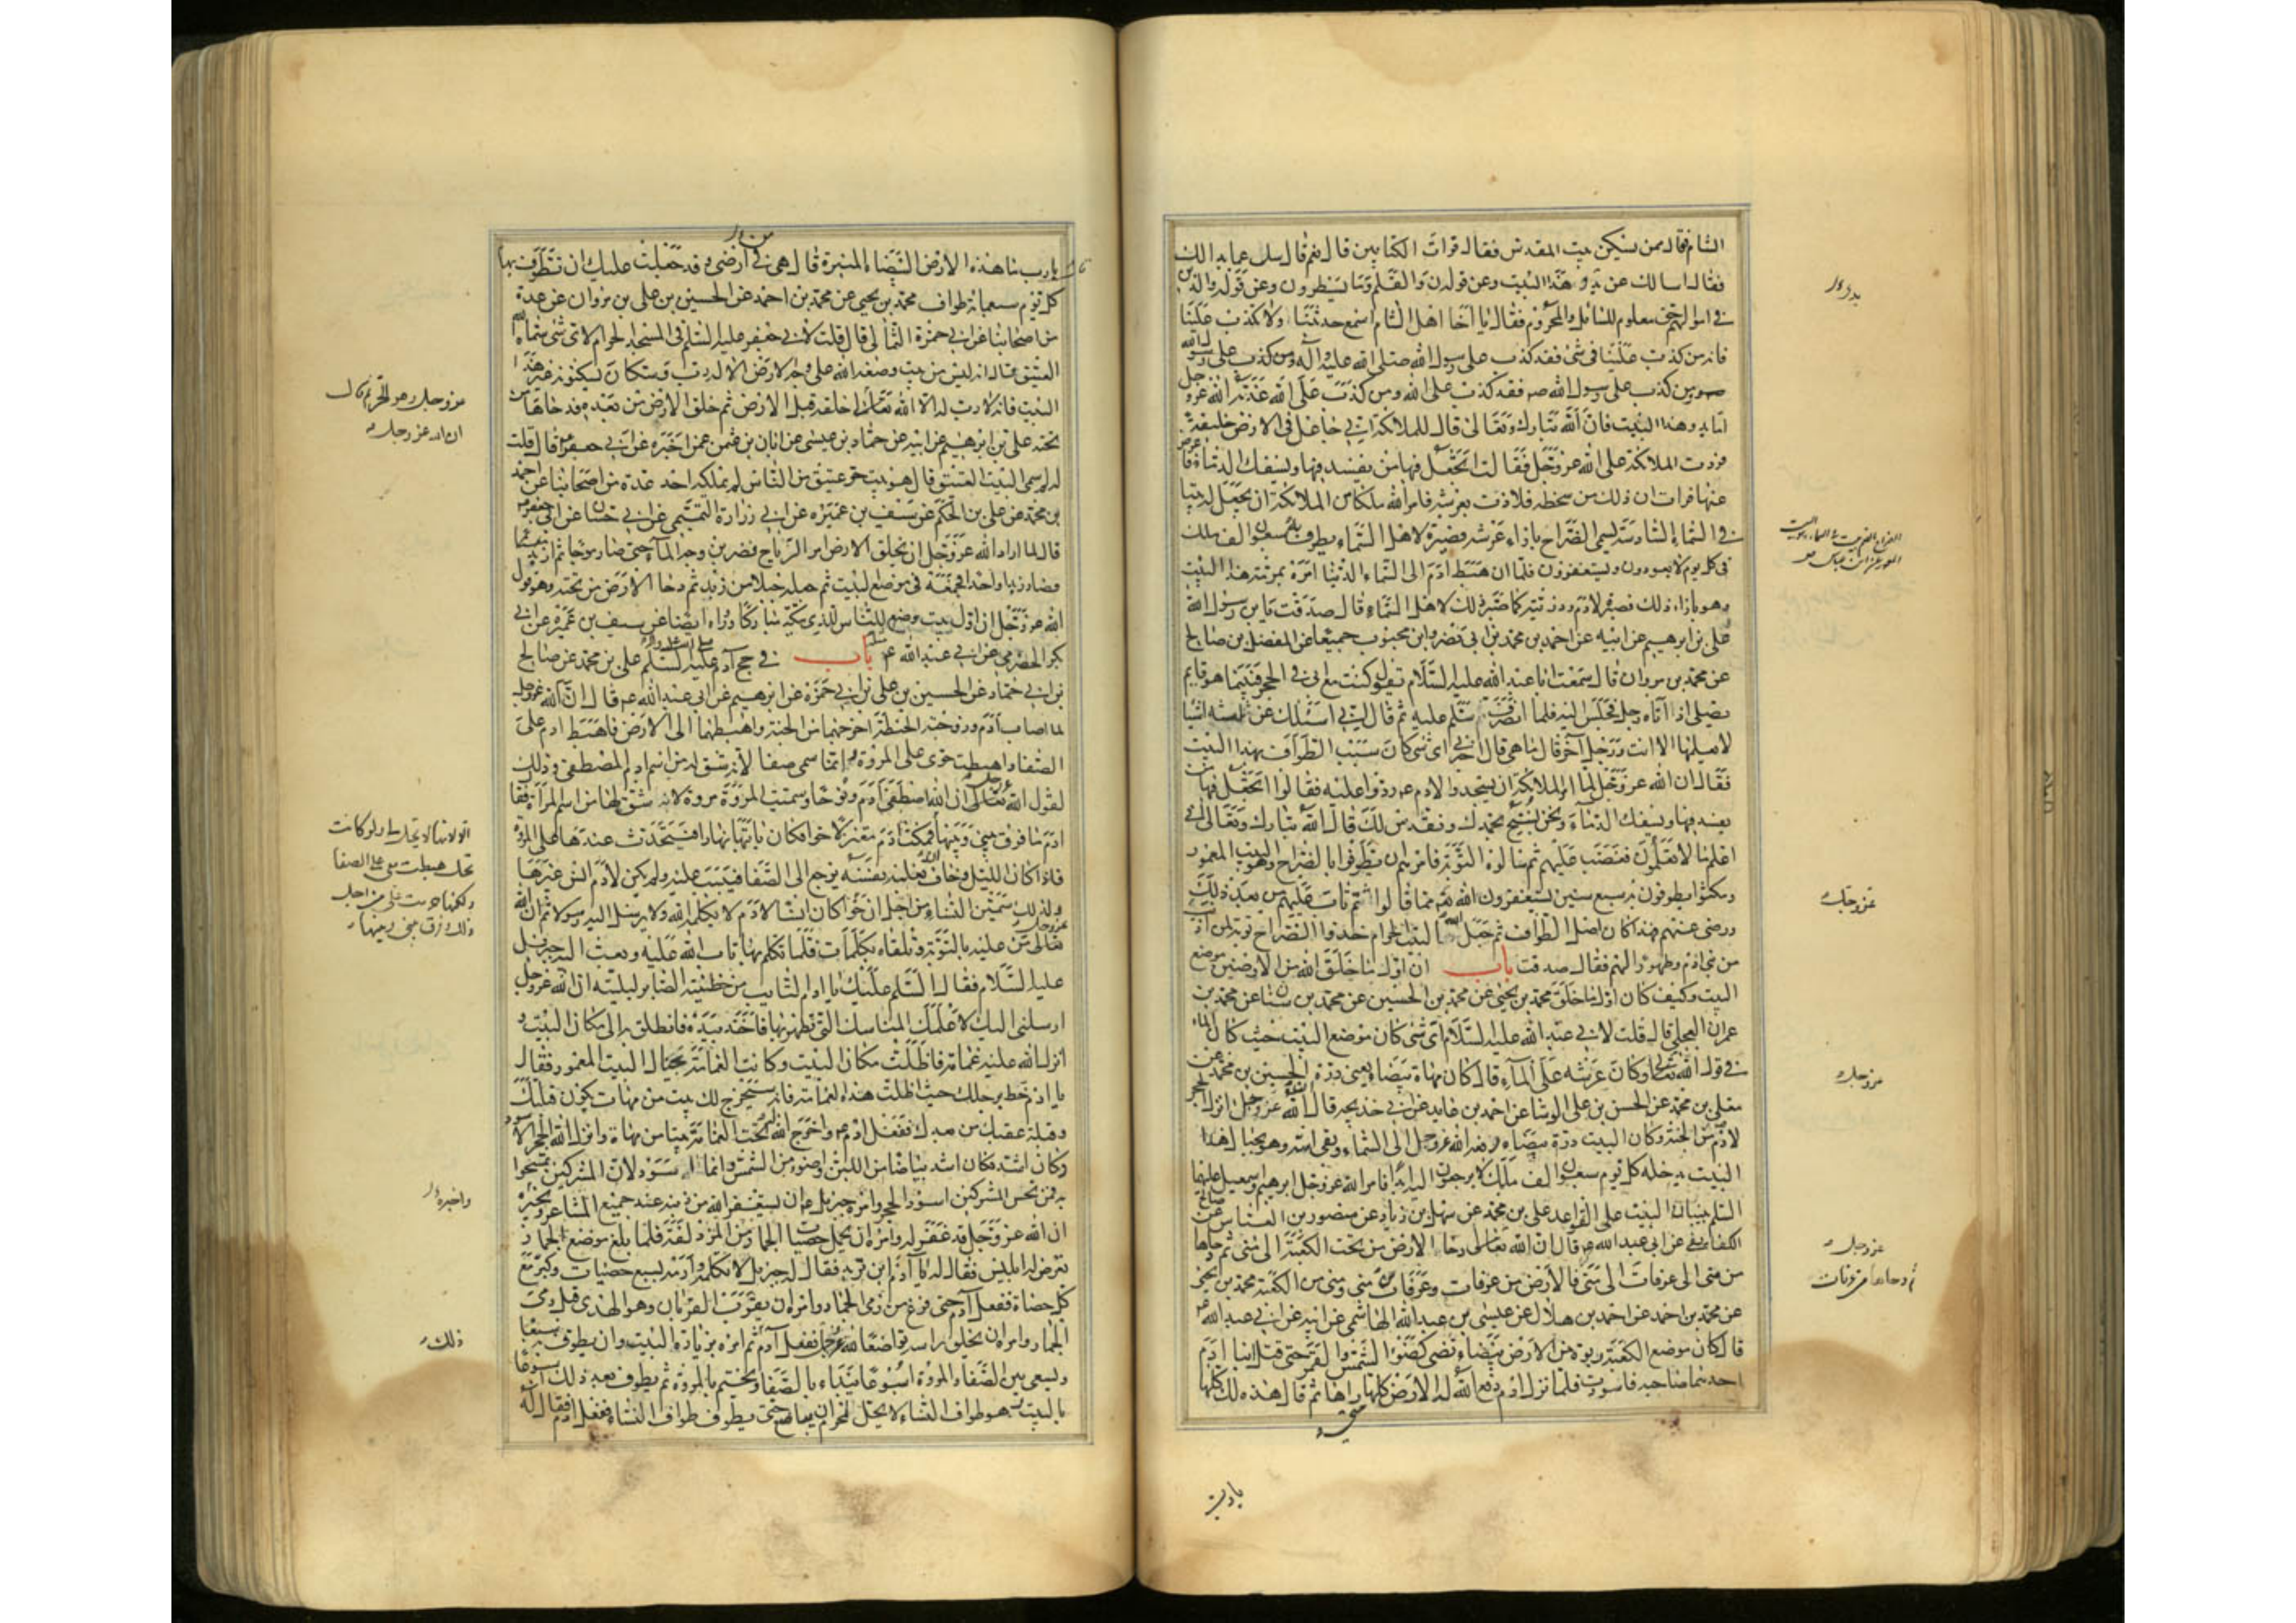 الشام فقال ممن يسكن بيت المقدس فقال قرات الكتابين قال نعم قال سل عما بدا لك
فقال اسالك عن بدو هذا البيت وعن قوله ن والقلم وما يسطرون وعن قوله والذين
في اموالهم حق معلوم للسائل والمحروم فقال يا اخا اهل الشام اسمع حديثنا ولا تكذب علينا
فانه من كذب علينا في شئ فقد كذب على رسول الله صلى الله عليه وآله ومن كذب على رسول الله
ومن كذب على رسول الله ص فقد كذب على الله ومن كذب على الله عذبه الله عزوجل
اما بدو هذا البيت فان الله تبارك وتعالى قال للملائكة اني جاعل في الارض خليفة
فردت الملائكة على الله عزوجل فقالت اتجعل فيها من يفسد فيها ويسفك الدماء فاعرض
عنها فرات ان ذلك من سخطه فلاذت بعرشه فامر الله ملكا من الملائكة ان يجعل له بيتا
في السماء السادسة يسمى الضراح بازاء عرشه فصيره لاهل السماء يطوف به سبعون الف ملك
في كل يوم لا يعودون ويستغفرون فلما ان هبط ادم الى السماء الدنيا امره بمرمة هذا البيت
وهو بازاء ذلك فصيره لادم وذريته كما صير ذلك لاهل السماء قال صدقت يا بن رسول الله
علي بن ابرهيم عن ابيه عن احمد بن محمد بن ابي نصر وابن محبوب جميعا عن المفضل بن صالح
عن محمد بن مروان قال سمعت ابا عبد الله عليه السلام يقول كنت مع ابي في الحجر فبينما هو قايم
يصلي اذ اتاه رجل فجلس اليه فلما انصرف سلم عليه ثم قال اني اسئلك عن ثلثة اشيا
لا يعلمها الا انت ورجل آخر قال ما هي قال اخبرني اي شئ كان سبب الطواف بهذا البيت
فقال ان الله عزوجل لما امر الملائكة ان يسجدوا لادم ع ردوا عليه فقالوا اتجعل فيها من
يفسد فيها ويسفك الدماء ونحن نسبح بحمدك ونقدس لك قال الله تبارك وتعالى اني
اعلم ما لا تعلمون فغضب عليهم ثم سالوه التوبة فامرهم ان يطوفوا بالضراح وهو البيت المعمور
ومكثوا يطوفون به سبع سنين يستغفرون الله مما قالوا ثم تاب عليهم من بعد ذلك
ورضي عنهم فهذا كان اصل الطواف ثم جعل الله البيت الحرام حذو الضراح توبة لمن اذنب
من بني ادم وطهورا لهم فقال صدقت باب ان اول ما خلق الله من الارضين موضع
البيت وكيف كان اول ما خلق محمد بن يحيى عن محمد بن الحسين عن محمد بن سنان عن محمد بن
عمران العجلي قال قلت لابي عبد الله عليه السلام اي شئ كان موضع البيت حيث كان الماء
في قول الله تعالى وكان عرشه على الماء قال كان مهاة بيضاء يعني درة الحسين بن محمد عن
معلى بن محمد عن الحسن بن علي الوشا عن احمد بن عايذ عن ابي خديجه قال ان الله عزوجل انزل الحجر
لآدم من الجنة وكان البيت درة بيضاء فرفعه الله عزوجل الى السماء وبقي اسه وهو بحيال هذا
البيت يدخله كل يوم سبعون الف ملك لا يرجعون اليه ابدا فامر الله عزوجل ابرهيم واسمعيل عليهما
السلم ببنيان البيت على القواعد علي بن محمد عن سهل بن زياد عن منصور بن العباس عن صالح
اللفائفي عن ابي عبد الله ع قال ان الله تعالى دحا الارض من تحت الكعبة الى منى ثم دحاها
من منى الى عرفات الى منى فالارض من عرفات وعرفات من منى ومنى من الكعبة محمد بن يحيى
عن محمد بن احمد عن احمد بن هلال عن عيسى بن عبد الله الهاشمي عن ابيه عن ابي عبد الله ع
قال كان موضع الكعبة ربوة من الارض بيضاء تضي كضوء الشمس والقمر حتى قتل ابنا ادم
احدهما صاحبه فاسودت فلما نزل ادم رفع الله له الارض كلها راها ثم قال هذه لك كلها
يا رب
عزوجل
عزوجل
عزوجل
ثم دحاها من عرفات
يا رب ما هذه الارض البيضاء المنيرة قال هي في ارضي وقد جعلت عليك ان تطوف بها
كل يوم سبعمائة طواف محمد بن يحيى عن محمد بن احمد عن الحسين بن علي بن مروان عن عدة
من اصحابنا عن ابي حمزة الثمالي قال قلت لابي جعفر عليه السلم في المسجد الحرام لاي شئ سماه الله
العتيق فقال انه ليس من بيت وضعه الله على وجه الارض الا له رب وسكان يسكنونه غير هذا
البيت فانه لا رب له الا الله تعالى خلقه قبل الارض ثم خلق الارض من بعده فدحاها من
تحته علي بن ابرهيم عن ابيه عن حماد بن عيسى عن ابان بن عثمن عمن اخبره عن ابي جعفر ع قال قلت
له لم سمي البيت العتيق قال هو بيت حر عتيق من الناس لم يملكه احد عدة من اصحابنا عن احمد
بن محمد عن علي بن الحكم عن سيف بن عميره عن ابي زرارة التميمي عن ابي حسان عن ابي جعفر ع
قال لما اراد الله عزوجل ان يخلق الارض امر الرياح فضربن وجه الماء حتى صار موجا ثم ازبد
فصار زبدا واحدا فجمعه في موضع البيت ثم جعله جبلا من زبد ثم دحا الارض من تحته وهو قول
الله عزوجل ان اول بيت وضع للناس للذي ببكة مباركا ورواه ايضا عن سيف بن عميرة عن ابي
بكر الحضرمي عن ابي عبد الله ع باب في حج آدم عليه السلم علي بن محمد عن صالح
بن ابي حماد عن الحسين بن علي بن ابي حمزة عن ابرهيم عن ابي عبد الله ع قال ان الله عزوجل
لما اصاب آدم وزوجته الحنطة اخرجهما من الجنة واهبطهما الى الارض فاهبط ادم على
الصفا واهبطت حوى على المروة وانما سمي صفا لانه شق له من اسم ادم المصطفى وذلك
لقول الله تعالى ان الله اصطفى آدم ونوحا وسميت المروة مروة لانه شق لها من اسم المرأة فقال
ادم ما فرق بيني وبينها فمكث آدم معتزلا حوا فكان ياتيها نهارا فيتحدث عندها على المروة
فاذا كان الليل وخاف ان تغلبه نفسه يرجع الى الصفا فيبيت عليه ولم يكن لآدم انس غيرها
ولذلك سمين النساء من اجل ان حوا كان انسا لآدم لا يكلمه الله ولا يرسل اليه رسولا ثم ان الله
تعالى من عليه بالتوبة وتلقاه بكلمات فلما تكلم بها تاب الله عليه وبعث اليه جبرئيل
عليه السلام فقال السلم عليك يا ادم التايب من خطيئته الصابر لبليته ان الله عزوجل
ارسلني اليك لاعلمك المناسك التي تطهر بها فاخذ بيده فانطلق به الى مكان البيت و
انزل الله عليه غمامة فاظلت مكان البيت وكانت الغمامة بحيال البيت المعمور فقال
يا ادم خط برجلك حيث اظلت هذه الغمامة فانه سيخرج لك بيت من مهات يكون قبلتك
وقبلة عقبك من بعدك ففعل ادم ع واخرج الله له تحت الغمامة بيتا من مهاة وانزل الله الحجر الاسود
وكان اشد بياضا من اللبن واضوء من الشمس وانما اسود لان المشركين تمسحوا
به فمن نجس المشركين اسود الحجر وامره جبرئيل ع ان يستغفر الله من ذنبه عند جميع المشاعر ويخبره
ان الله عزوجل قد غفر له وامره ان يحمل حصيات الجمار من المزدلفة فلما بلغ موضع الجمار
تعرض له ابليس فقال له يا آدم اين تريد فقال له جبرئيل لا تكلمه وارمه بسبع حصيات وكبر مع
كل حصاة ففعل آدم حتى فرغ من رمي الجمار وامره ان يقرب القربان وهو الهدي قبل رمي
الجمار وامره ان يحلق راسه تواضعا لله عزوجل ففعل آدم ثم امره بزيارة البيت وان يطوف به سبعا
ويسعى بين الصفا والمروة اسبوعا يبدء بالصفا ويختم بالمروة ثم يطوف بعد ذلك اسبوعا
بالبيت وهو طواف النساء لا يحل لمحرم ان يباضع حتى يطوف طواف النساء ففعل ادم فقال له
عزوجل وهو الحرم قال
ان الله عزوجل
ذلك